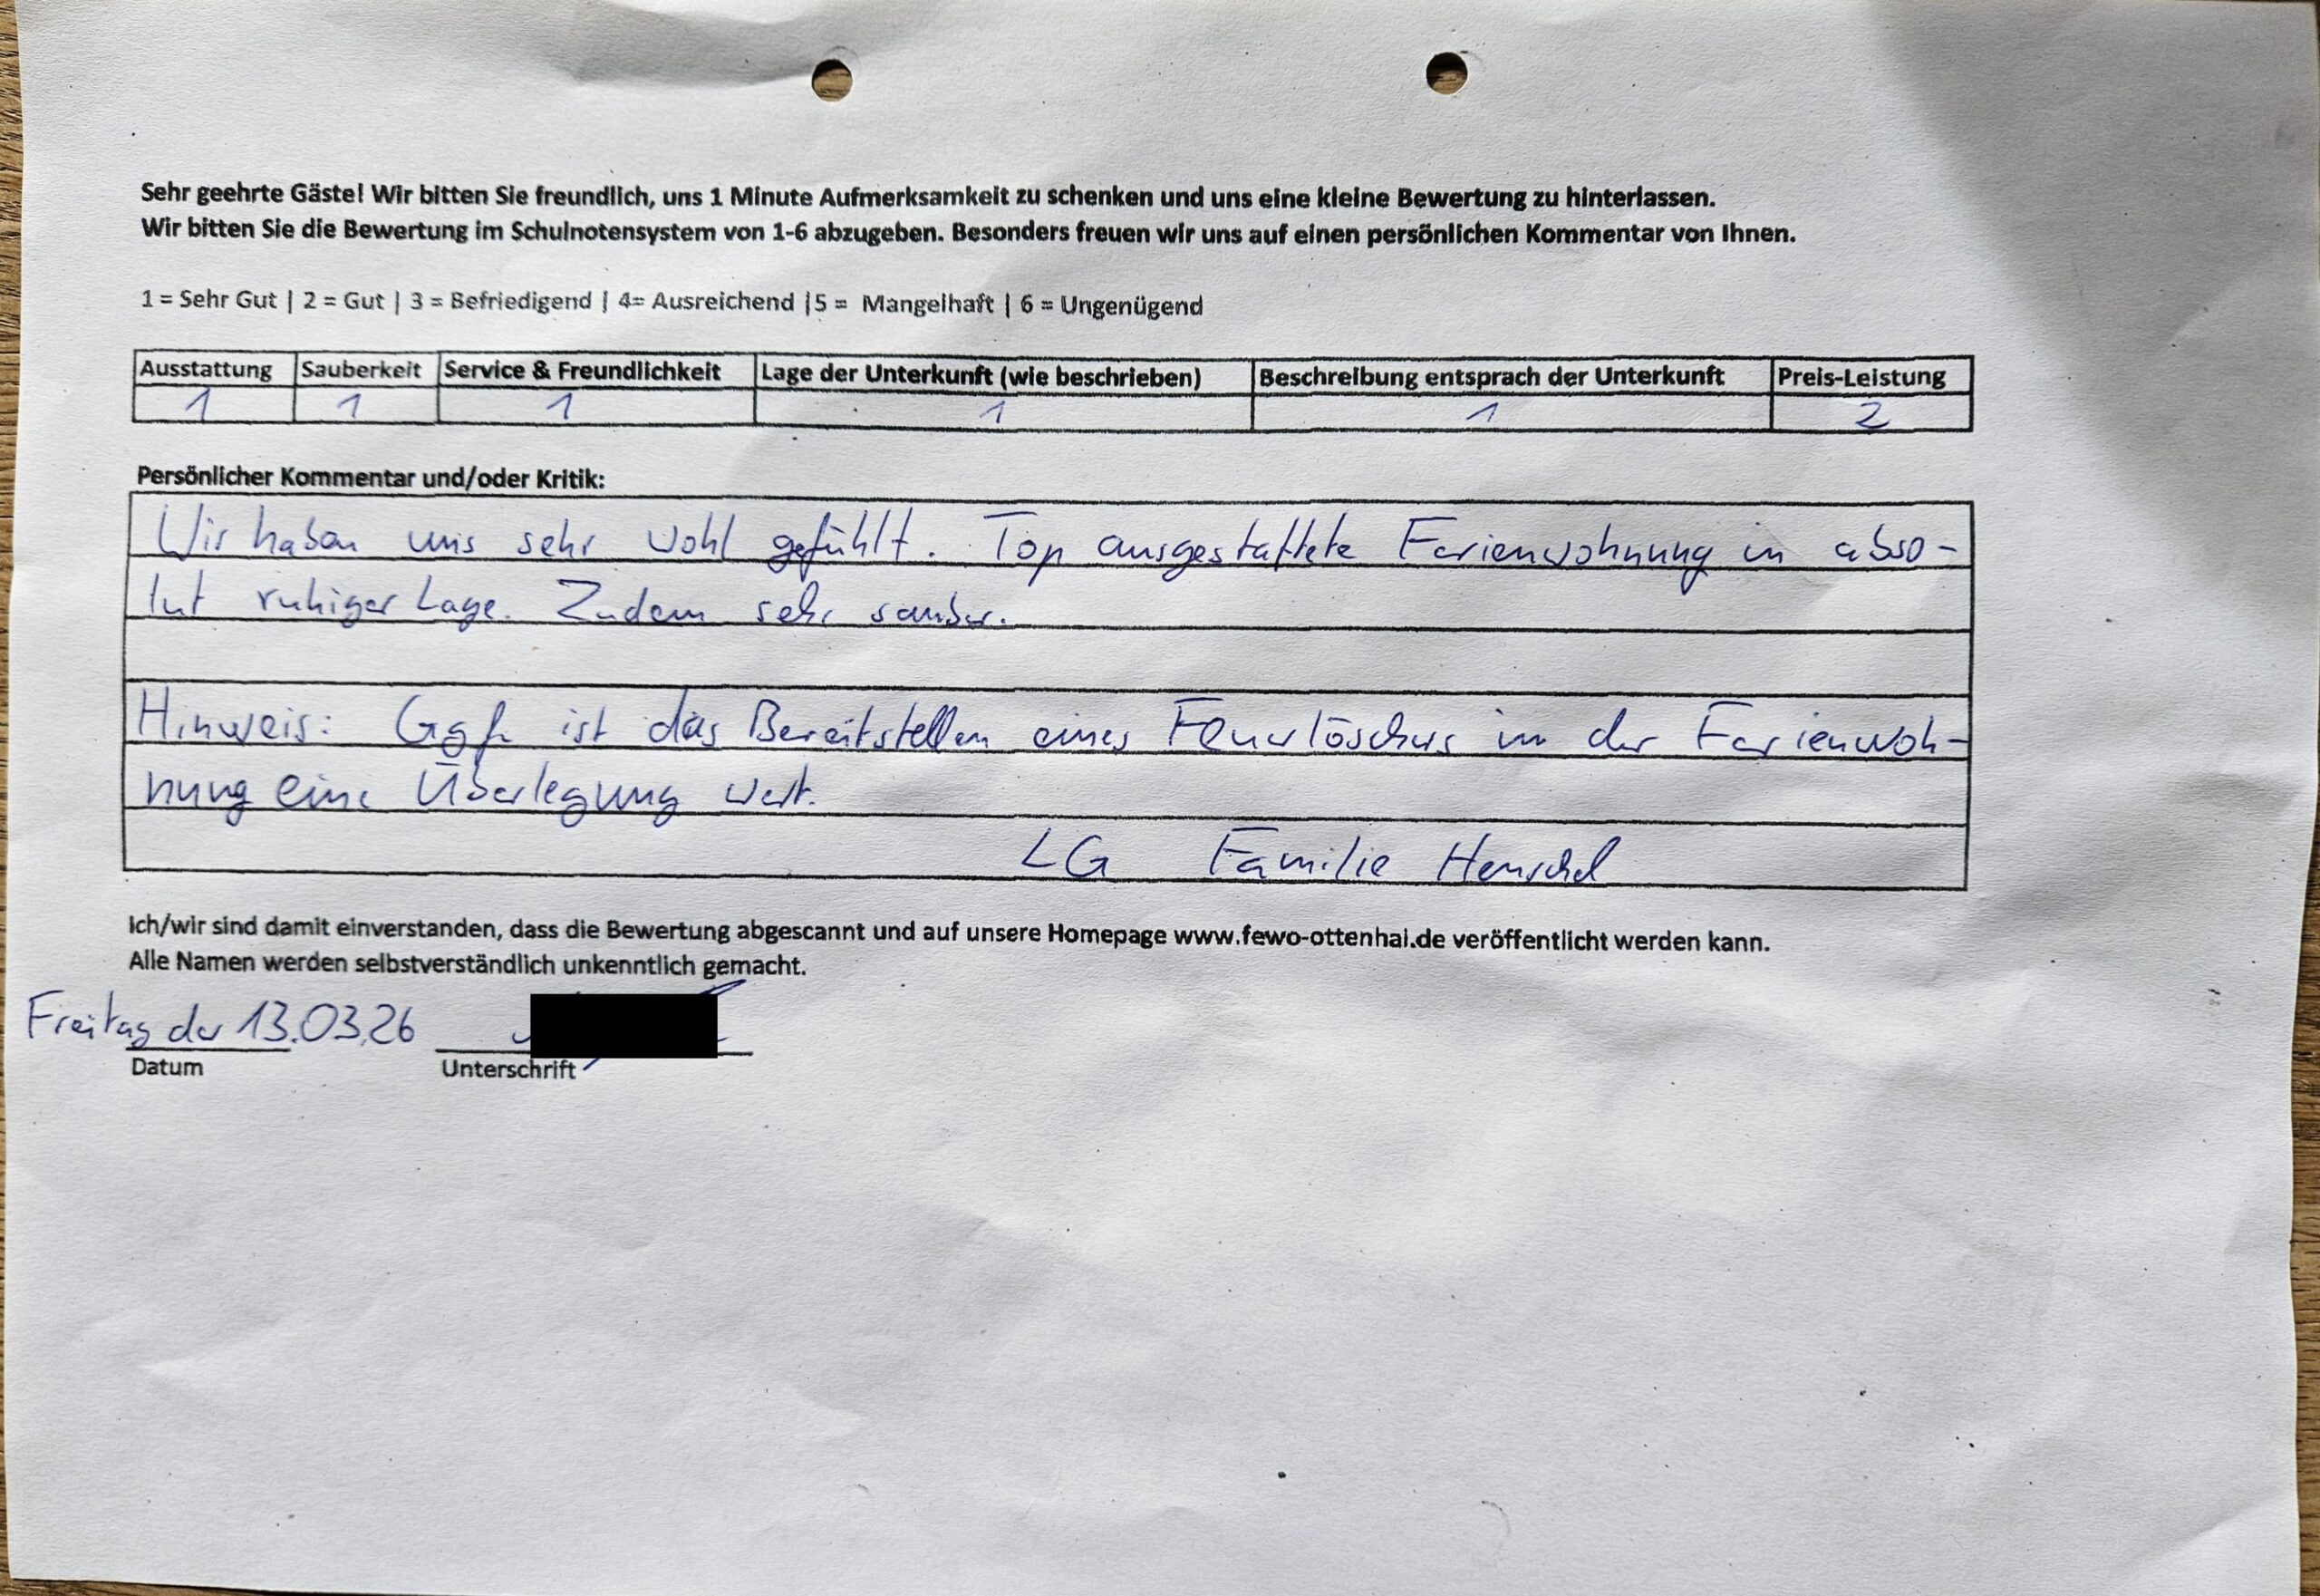 Sehr geehrte Gäste! Wir bitten Sie freundlich, uns 1 Minute Aufmerksamkeit zu schenken und uns eine kleine Bewertung zu hinterlassen.
Wir bitten Sie die Bewertung im Schulnotensystem von 1-6 abzugeben. Besonders freuen wir uns auf einen persönlichen Kommentar von Ihnen.
1 = Sehr Gut | 2 = Gut | 3 = Befriedigend | 4= Ausreichend |5 = Mangelhaft | 6 = Ungenügend
Ausstattung Sauberkeit Service & Freundlichkeit Lage der Unterkunft (wie beschrieben) Beschreibung entsprach der Unterkunft Preis-Leistung
1 1 1 1 1 2
Persönlicher Kommentar und/oder Kritik:
Wir haben uns sehr wohl gefühlt. Top ausgestattete Ferienwohnung in abso-
lut ruhiger Lage. Zudem sehr sauber.
Hinweis: Ggf. ist das Bereitstellen eines Feuerlöschers in der Ferienwoh-
nung eine Überlegung wert.
LG Familie Henschel
Ich/wir sind damit einverstanden, dass die Bewertung abgescannt und auf unsere Homepage www.fewo-ottenhal.de veröffentlicht werden kann.
Alle Namen werden selbstverständlich unkenntlich gemacht.
Freitag der 13.03.26
Datum Unterschrift